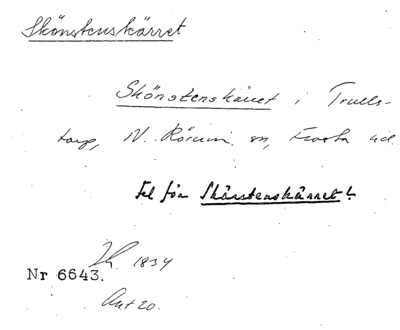 Skönstenskärret
Skönstenskärret i Trulls-
torp, N. Rörum sn, Frosta hd.
Fel för Skärstenskärret?
Jk. 1834
Nr 6643.
Akt 20.